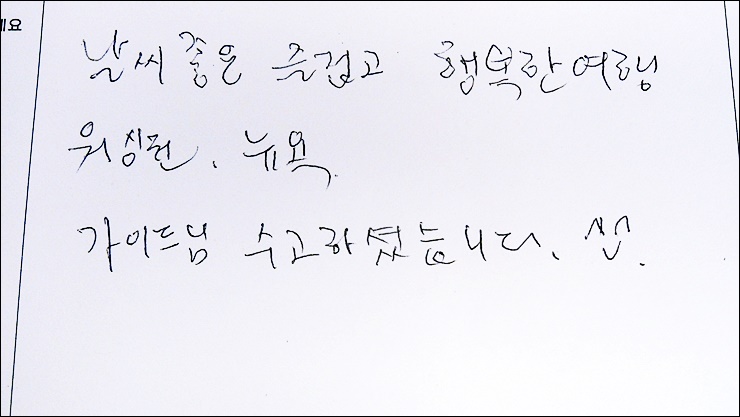 세요
날씨좋은 즐겁고 행복한여행
워싱턴, 뉴욕.
가이드님 수고하셨습니다.